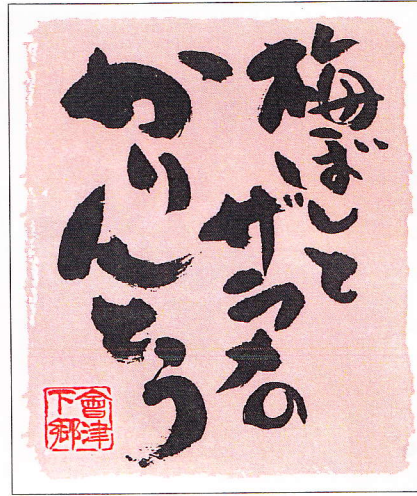 梅ぼしと
ザラメの
かりんとう
會津
下郷